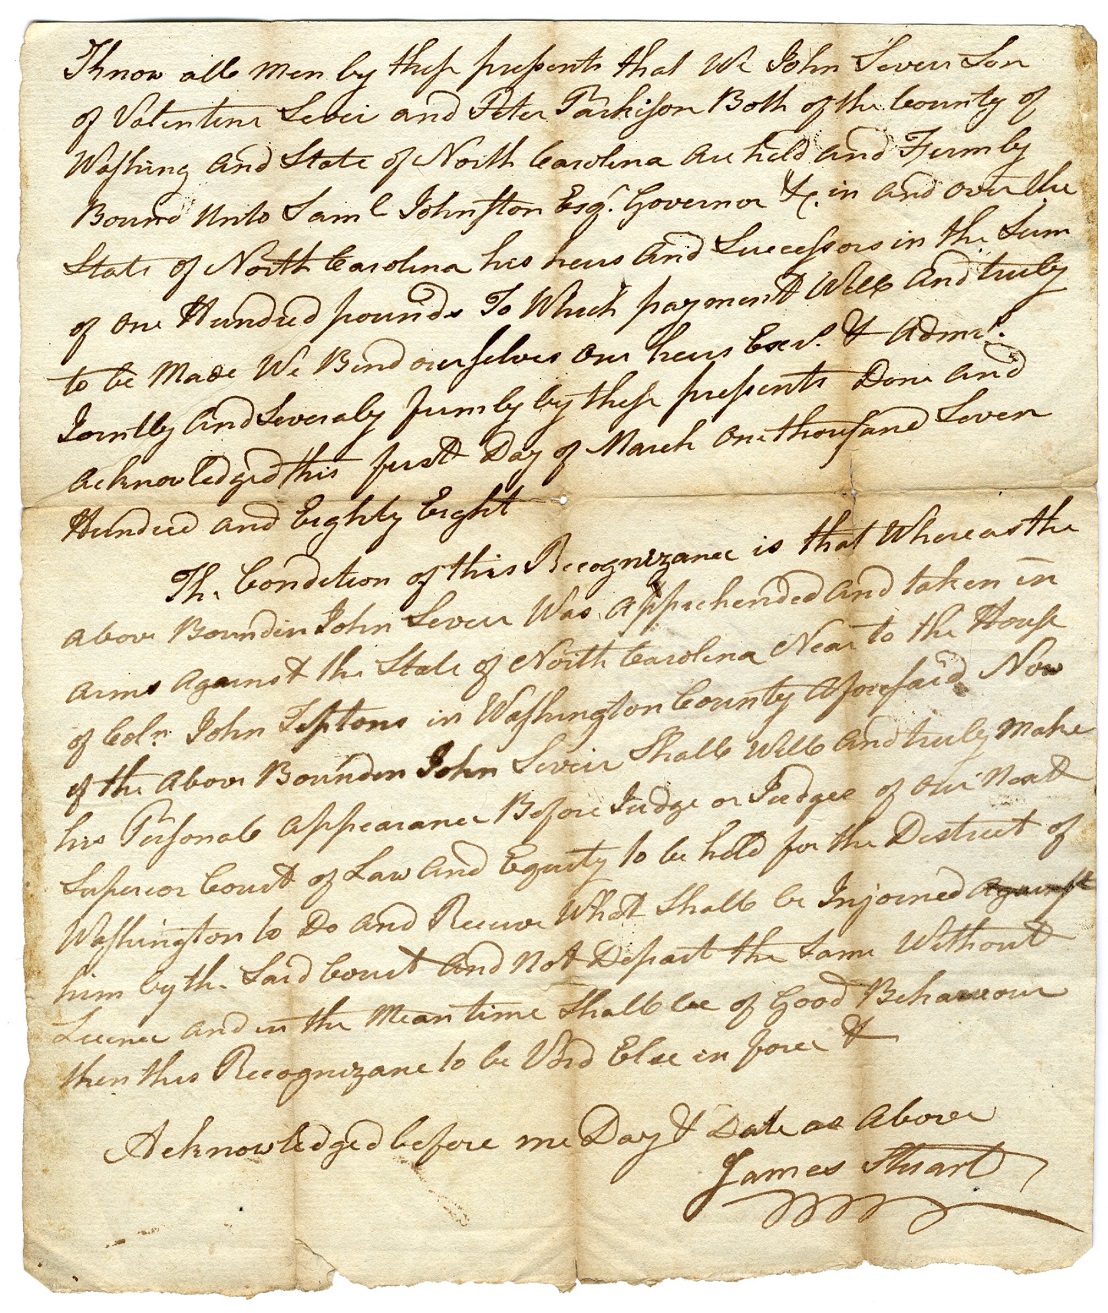 Know all Men by these presents that We John Sever Son
of Valentine Sevir and Peter Parkison Both of the County of
Washing and State of North Carolina are held and Firmly
Bound Unto Saml Johnston Esqr. Governor &c. in and over the
State of North Carolina his heirs and Successors in the Sum
of one Hundred pounds To Which payment Well and truly
to be Made We Bind ourselves our heirs Exers. & Admrs.
Jointly and Severaly firmly by these presents Done and
acknowledged this first Day of March one thousand Seven
Hundred and Eighty Eight
The Condition of this Recognizance is that Whereas the
above Bounden John Seveir Was apprehended and taken in
arms against the State of North Carolina Near to the House
of Coln. John Tiptons in Washington County aforesaid Now
if the above Bounden John Seveir Shall Well and truly Make
his Personal appearance Before Judge or Judges of our Next
Superior Court of Law and Equity to be held for the District of
Washington to Do and Receive What Shall be Injoined against
him by the Said Court and not Depart the Same Without
Licence and in the Mean time Shall be of Good Behaveour
then this Recognizance to be Void Else in force &
Acknowledged before me Day & Date as above
James Stuart